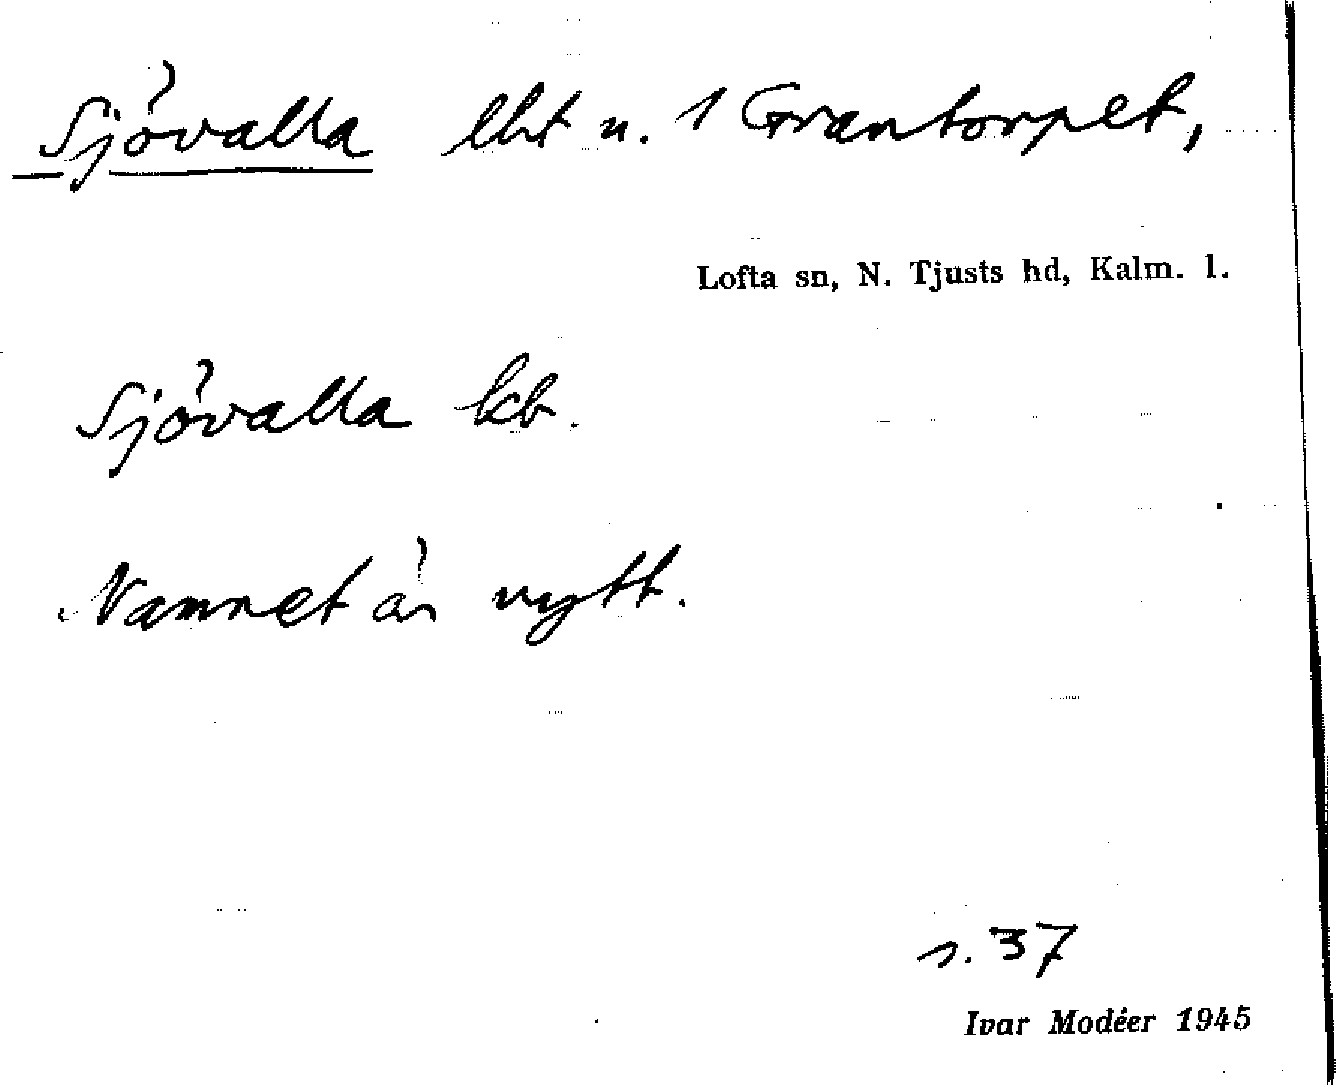 Sjövalla lht u. 1 Grantorpet,
Lofta sn, N. Tjusts hd, Kalm. l.
Sjövalla kb.
Namnet är nytt.
s. 37
Ivar Modéer 1945